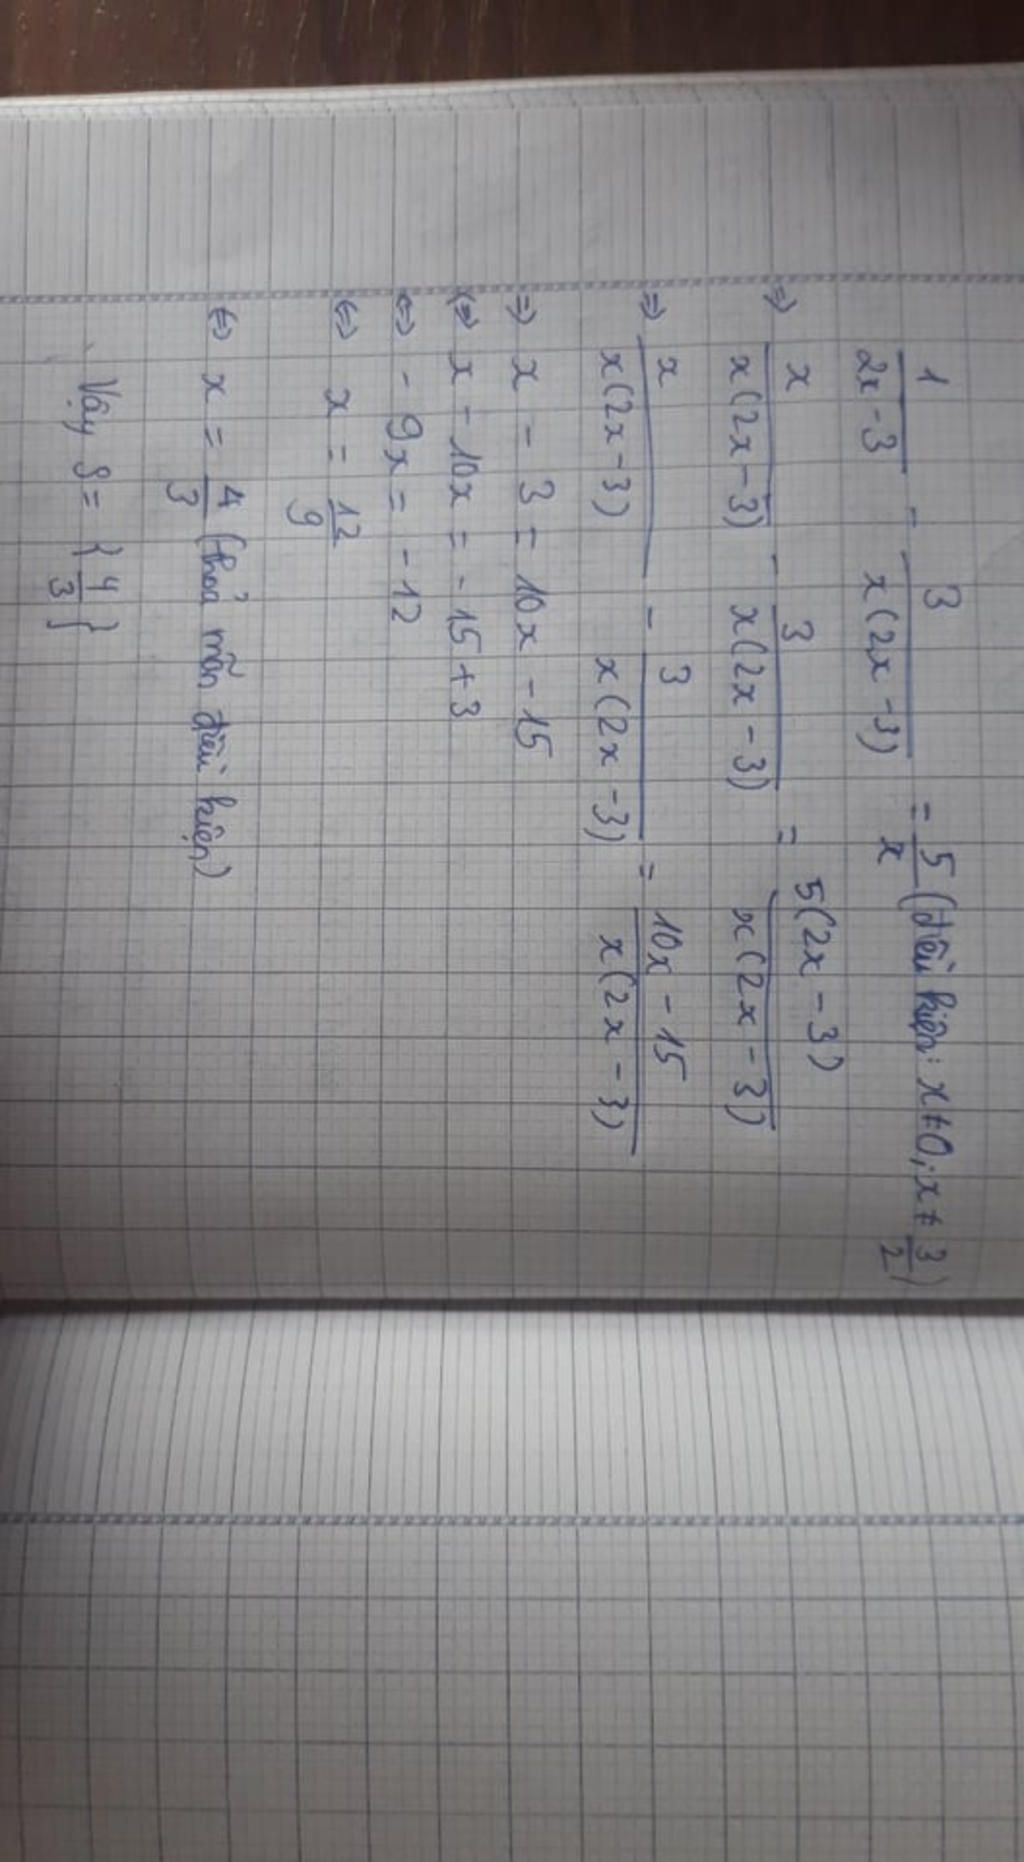 1/(2x-3) - 3/(x(2x-3)) = 5/x (điều kiện: x ≠ 0; x ≠ 3/2)
⇒ x/(x(2x-3)) - 3/(x(2x-3)) = 5(2x-3)/(x(2x-3))
⇒ x/(x(2x-3)) - 3/(x(2x-3)) = (10x-15)/(x(2x-3))
⇒ x - 3 = 10x - 15
⇔ x - 10x = -15 + 3
⇔ -9x = -12
⇔ x = 12/9
⇔ x = 4/3 (thoả mãn điều kiện)
Vậy S = {4/3}